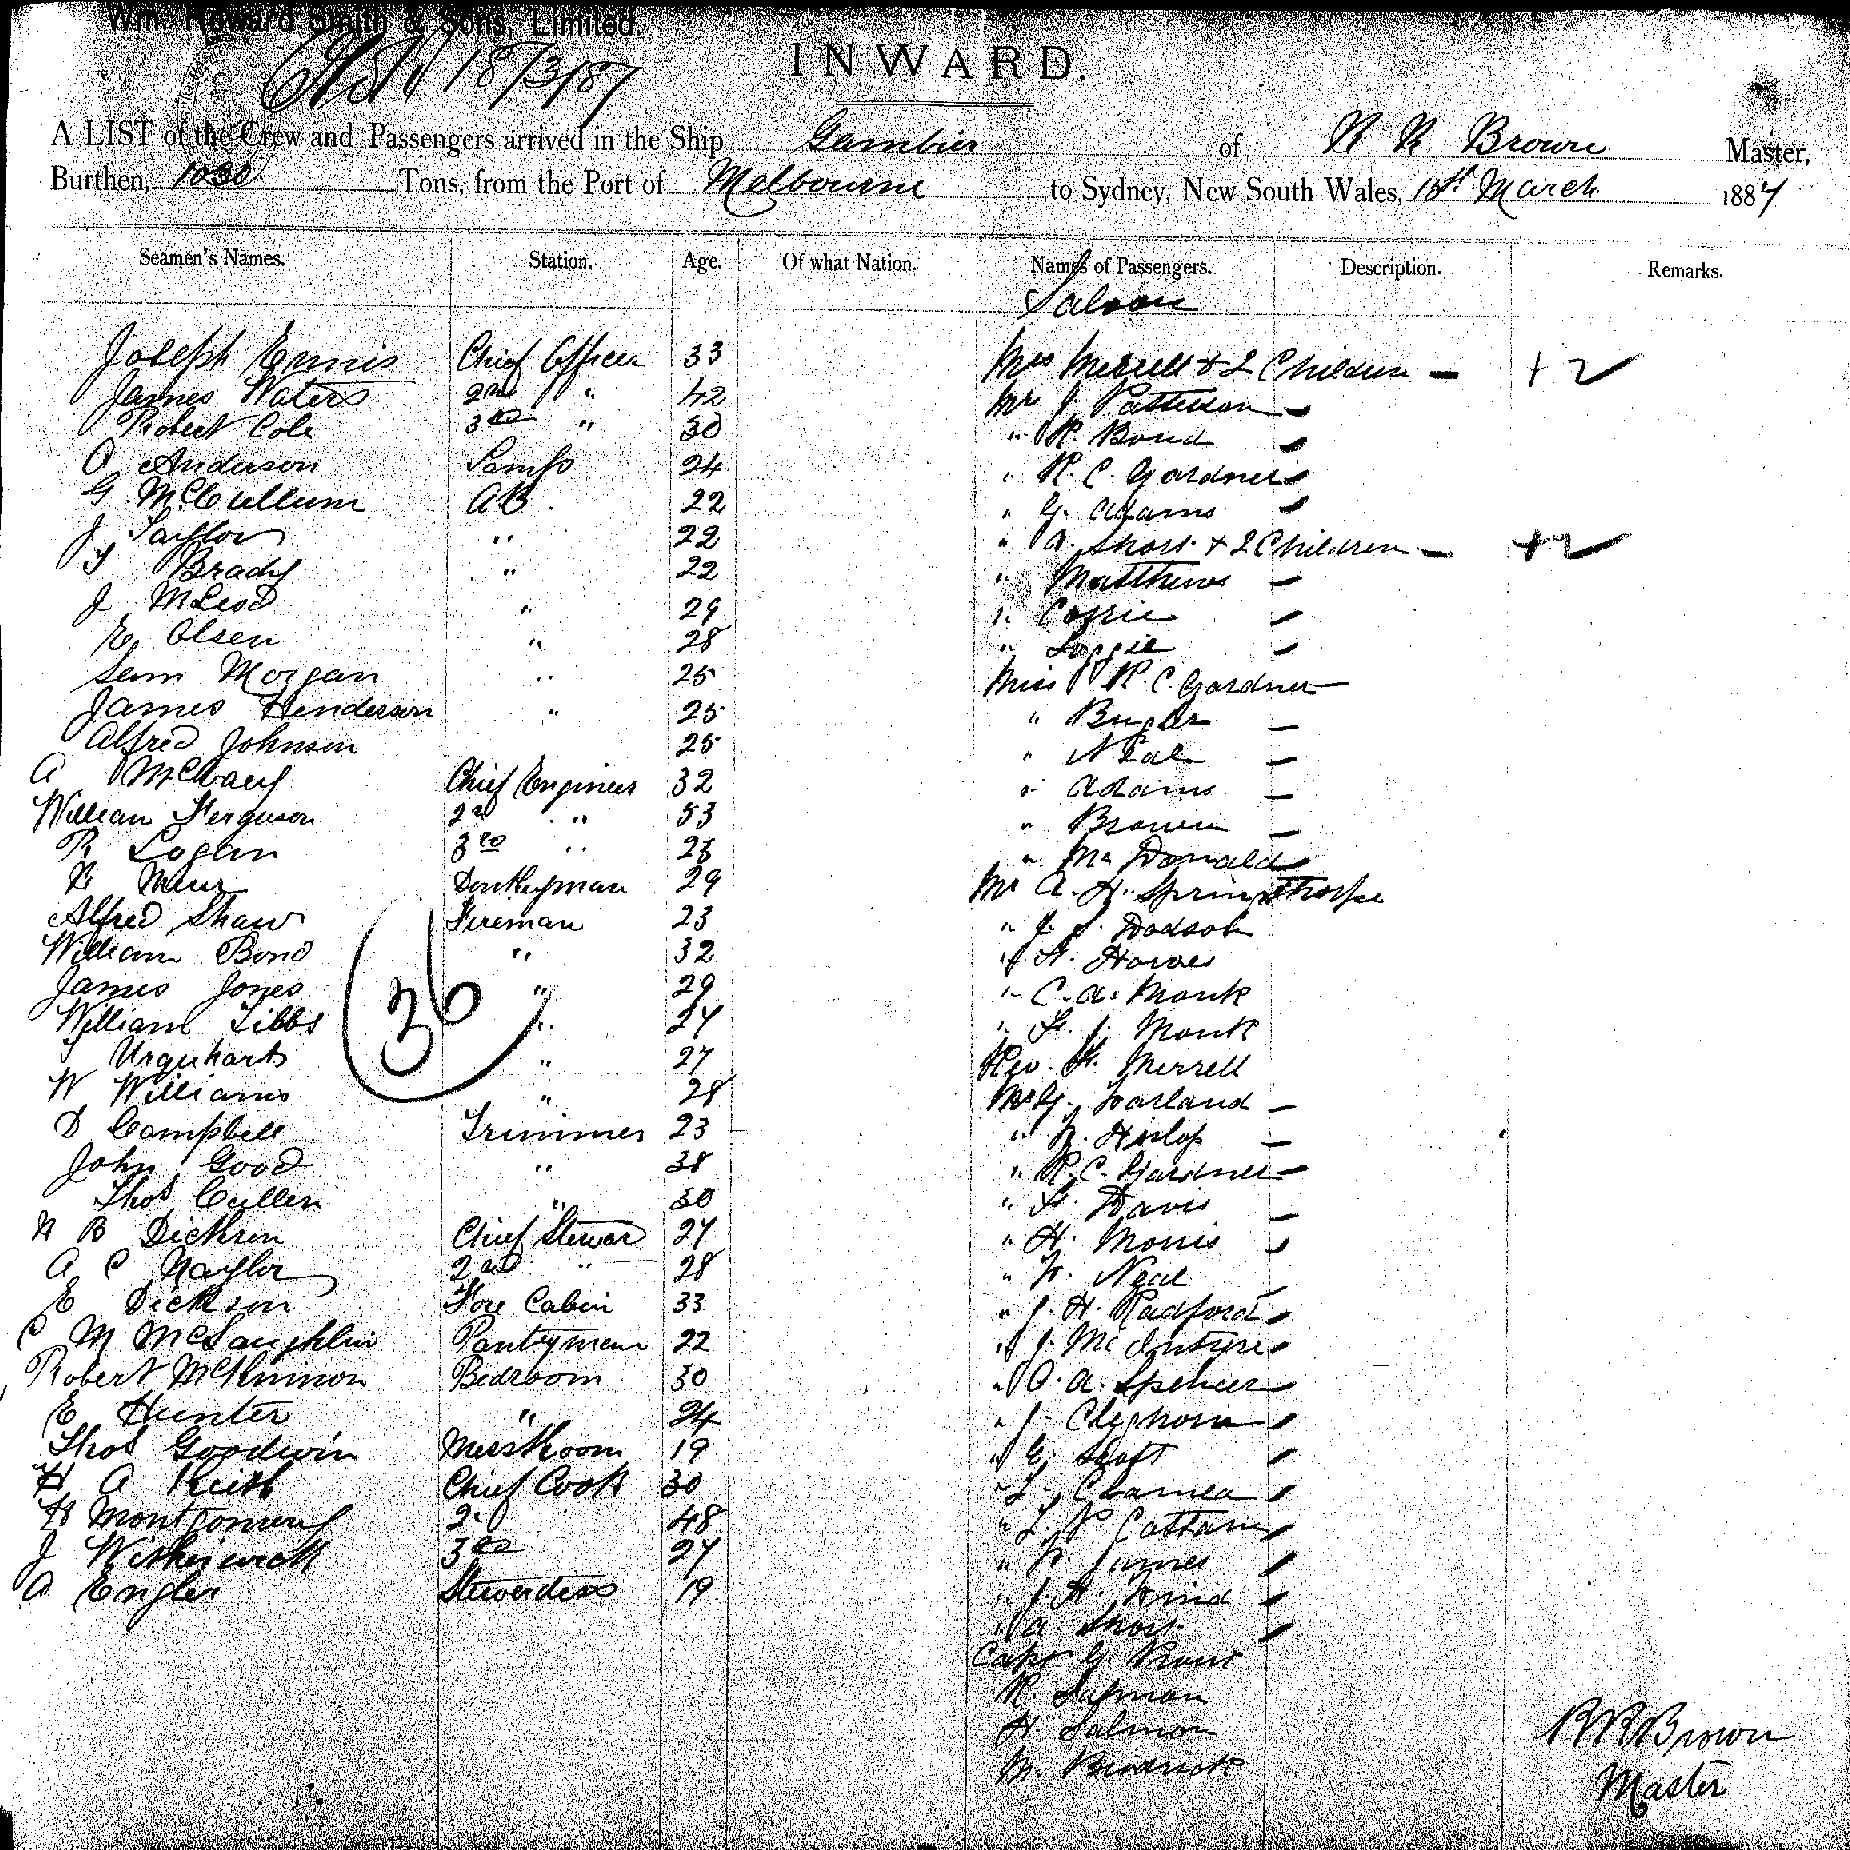 Wm. Howard Smith & Sons, Limited.
18/3/87
INWARD.
A LIST of the Crew and Passengers arrived in the Ship Gambier of R R Brown Master,
Burthen, 1030 Tons, from the Port of Melbourne to Sydney, New South Wales, 18th March 1887
Seamen's Names. Station. Age. Of what Nation. Names of Passengers. Description. Remarks.
Saloon
Joseph Ennis Chief Officer 33 Mrs Merrell & 2 Children – + 2
James Waters 2nd " 42 Mrs J. Patterson –
Robert Cole 3rd " 30 " R. Bond –
O Anderson Lamps 24 " R. C. Gardner –
G McCullum AB. 22 " G. Adams –
J Taylor " 22 " A. Short & 2 Children – + 2
Brady " 22 " Matthews –
J McLeod " 29 " Corrie –
E. Olsen " 28 " –
Sam Morgan " 25 Miss R C. Gardner –
James Henderson " 25 " –
Alfred Johnson 25 " Neal –
A Chief Engineer 32 " Adams –
William Ferguson 2nd " 53 " Brown –
R 3rd " " McDonald –
R Muir Donkeyman 29 Mr A. H. Springthorpe
Alfred Shaw Fireman 23 " J. Dodson
William Bond " 32 " H. Howes
James Jones " 29 " C. A. Monk
36
William Tibbs " 27 " F. J. Monk
Urquhart " 27 Rev. F. Merrell
W Williams " 28 Mr G. Garland –
D Campbell Trimmer 23 " –
John Good " 38 " R. C. Gardner –
Thos Cullen " 30 " F. Davis –
R B Dickson Chief Steward 27 " H. Morris –
A C Naylor 2nd " 28 " F. Neal –
E Dickson Fore Cabin 33 " J. H. Radford –
C M McLaughlin Pantryman 22 " J. McIntyre –
Robert McKinnon Bedroom 30 " O. A. Spencer –
E Hunter " 24 " J. Cleghorn –
Thos Goodwin Messroom 19 " –
H A Keith Chief Cook 30 " –
H Montgomery 2nd 48 " –
J 3rd 27 " F. James –
A Engler Stewardess 19 " J. H. –
" A Short –
Capt G.
R.
H. Salmon
R R Brown
Master